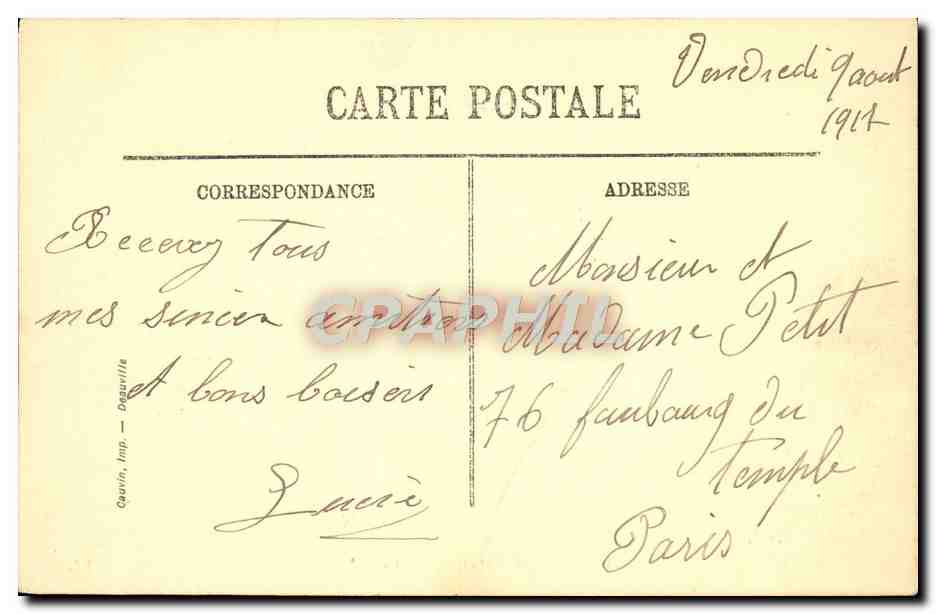 Vendredi 9 aout
CARTE POSTALE
CORRESPONDANCE
Recevez tous
mes sincer
et bons baisers
ADRESSE
Monsieur et
Madame Petit
76 faubourg du
temple
Paris
Cauvin, Imp. — Deauville
CPAPHIL